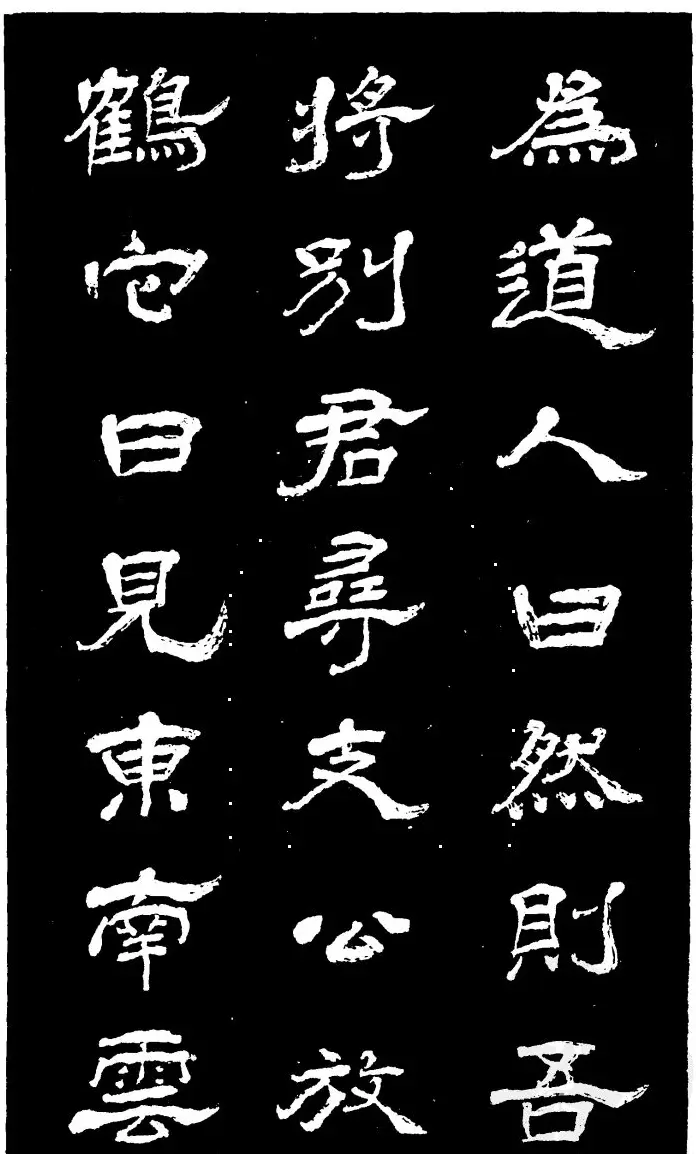 為道人曰然則吾
將別君尋支公放
鶴它日見東南雲